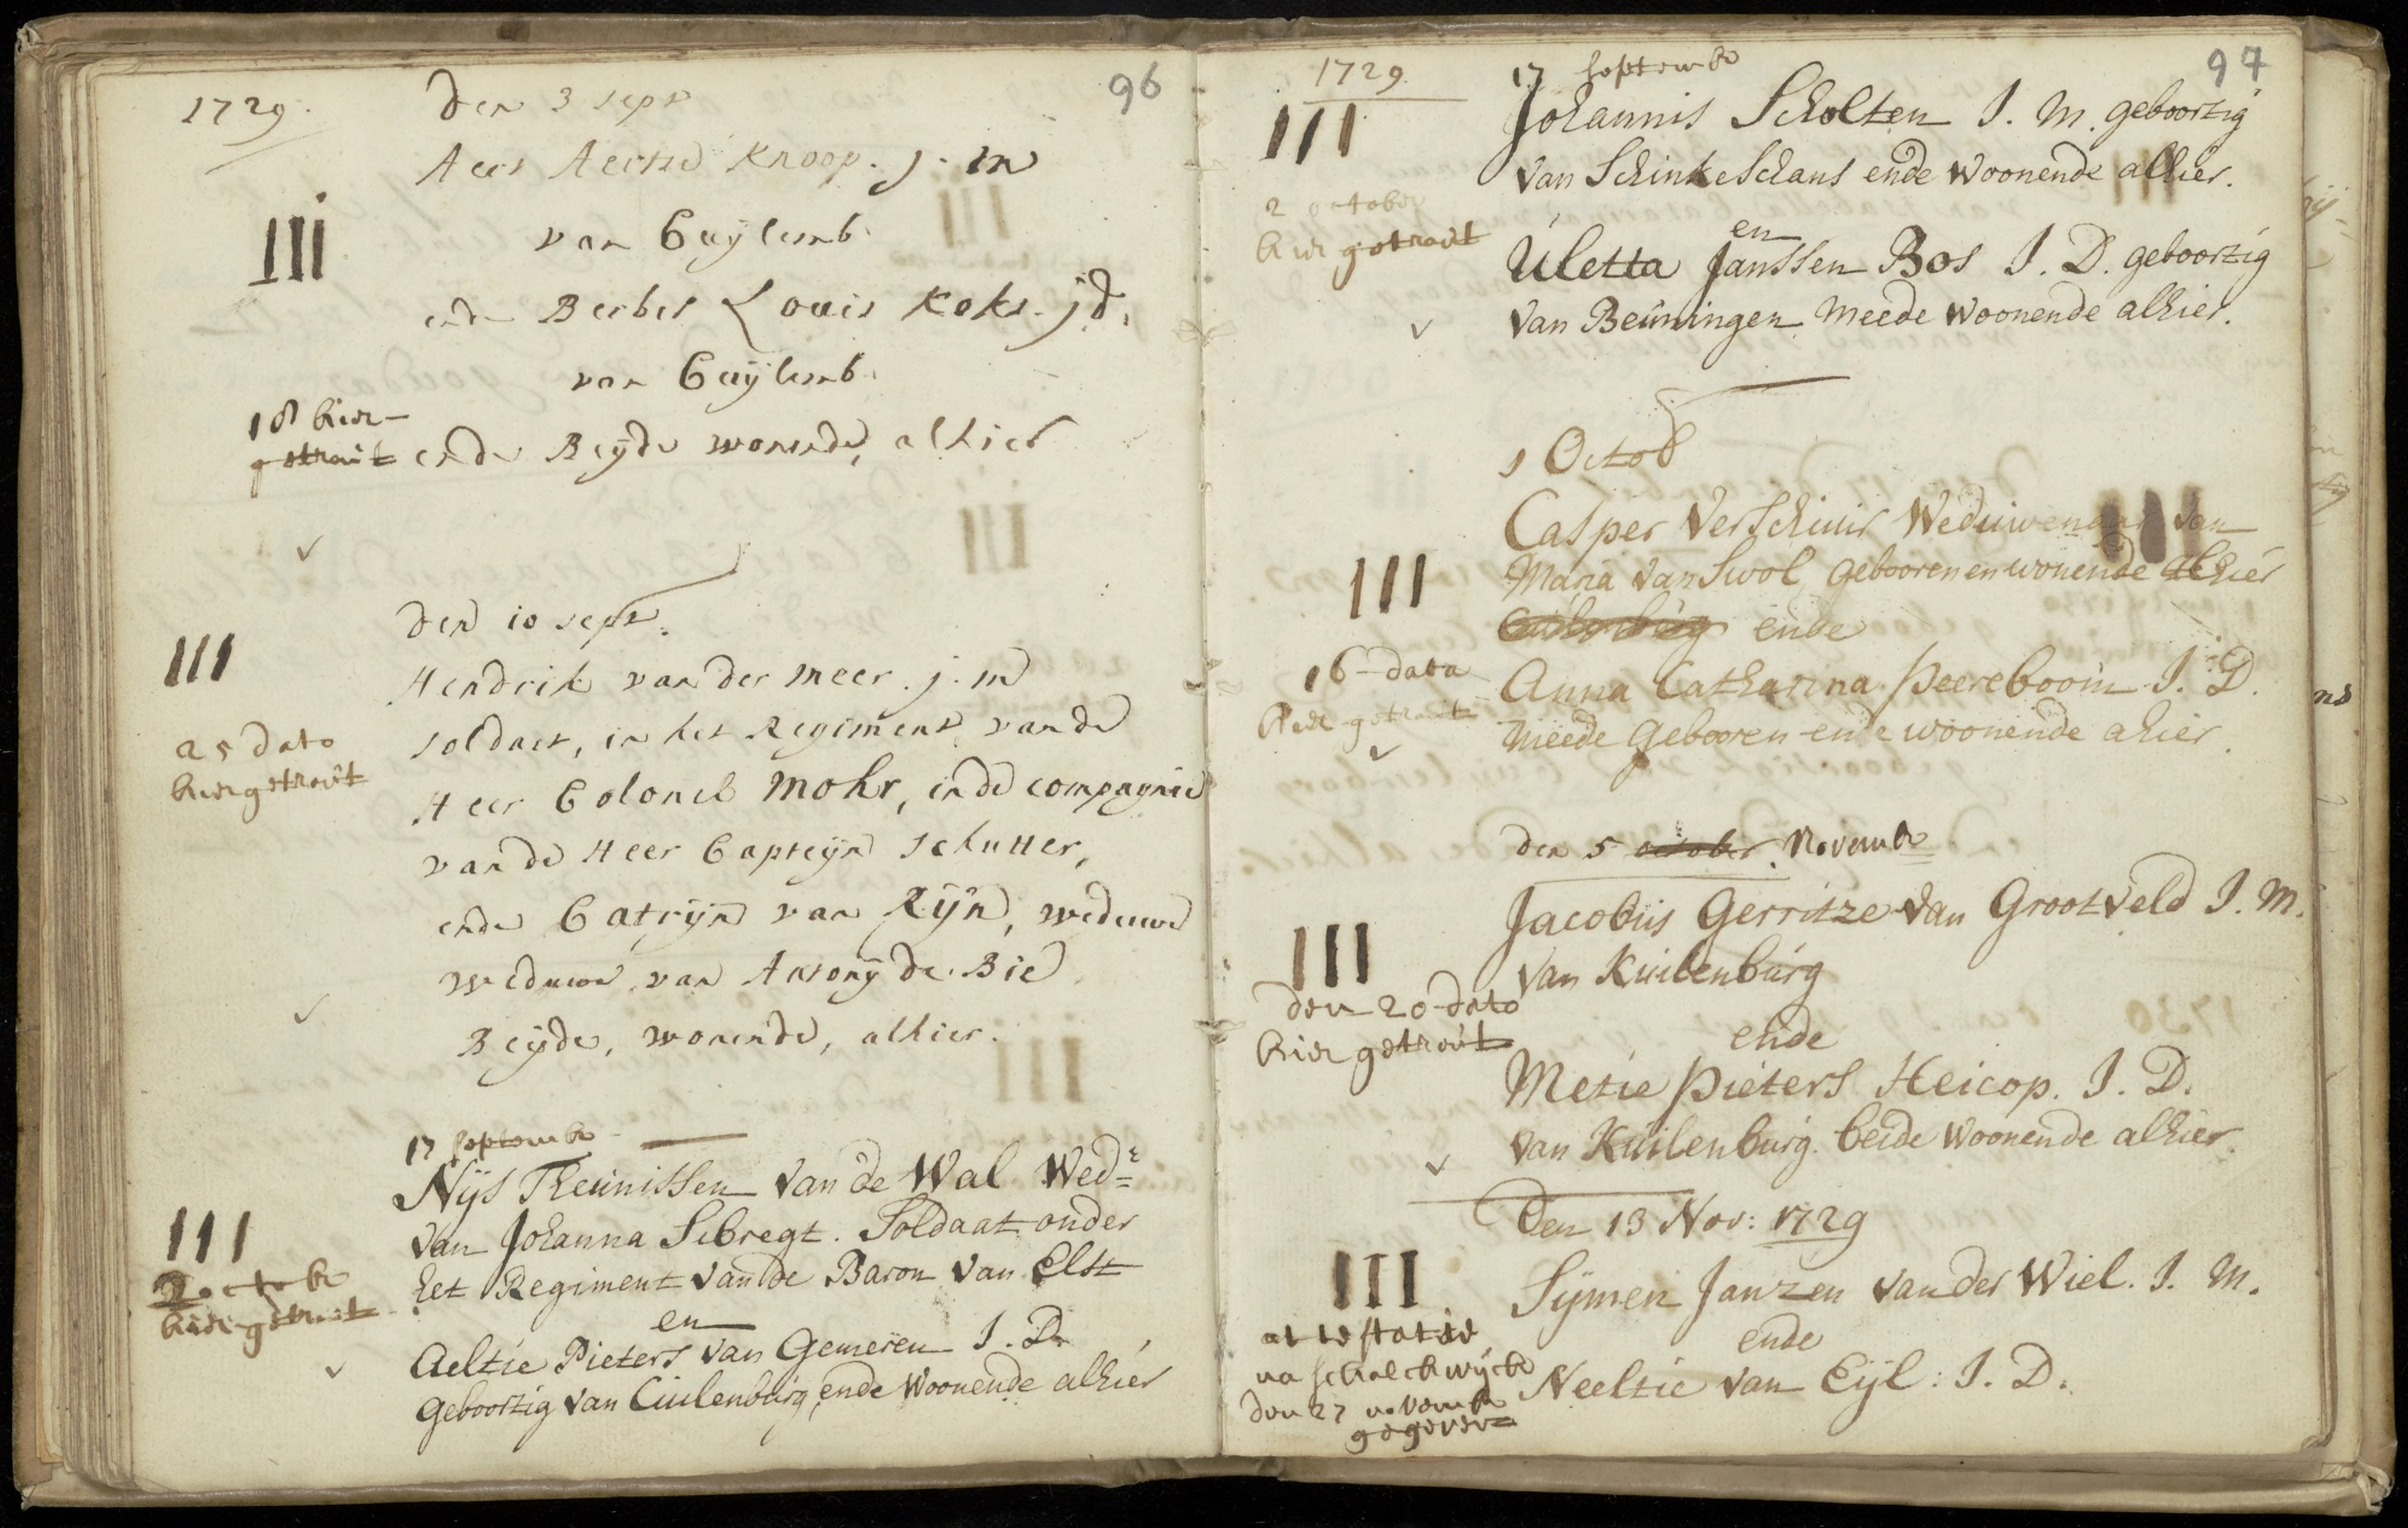 96
1729.
den 3 sept
Aert Aertse Knoop. j. m
III
van Cuylemb.
ende Berber Louis Koks. j d.
van Cuylemb.
18 hier
getrout
ende Beyde wonende, alhier
den 10 sept.
III
Hendrik van der meer. j. m
25 dato
hier getrout
soldaet, in het Regiment van de
Heer Colonel Mohr, in de compagnie
van de Heer Capteyn Schutter,
ende Catryn van Ryn, weduwe
weduwe van Antony de Bie
Beyde, wonende, alhier.
17 septemb
Nijs Theunissen van de Wal Wed.r
III
van Johanna Sibregt. Soldaat onder
2 octob
hier getrout
het Regiment van de Baron van Elst
en
Aeltie Pieters van Gemeren J. D.
Geboortig van Cuilenburg, ende Woonende alhier
97
1729.
17 septemb
III
Johannis Scholten J. M. geboortig
van Schinkeschans ende Woonende alhier.
2 october
hier getrout
en
Uletta Janssen Bos J. D. geboortig
van Beuningen meede woonende alhier.
1 Octob
Casper Verschuir Weduwenaar van
III
Maria van Swol, gebooren en wonende alhier
ende
16 dato
hier getrout
Anna Catharina Peereboom J. D.
meede gebooren ende woonende ahier.
den 5 october. Novemb
Jacobus Gerritze van Grootveld J. M.
III
van Kuilenburg
den 20 dato
hier getrout
ende
Metie Pieters Heicop. J. D.
van Kuilenburg. beide Woonende alhier.
Den 13 Nov: 1729
III
Symen Janzen van der Wiel. J. M.
attestatie
na schalckwyck
den 27 novemb
gegeven
ende
Neeltie van Eyl: J. D.